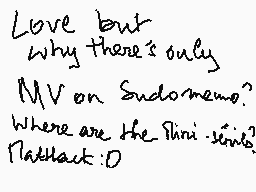 Love but
why there's only
MV on Sudomemo?
Where are the Mini-séries?
Matthack :D